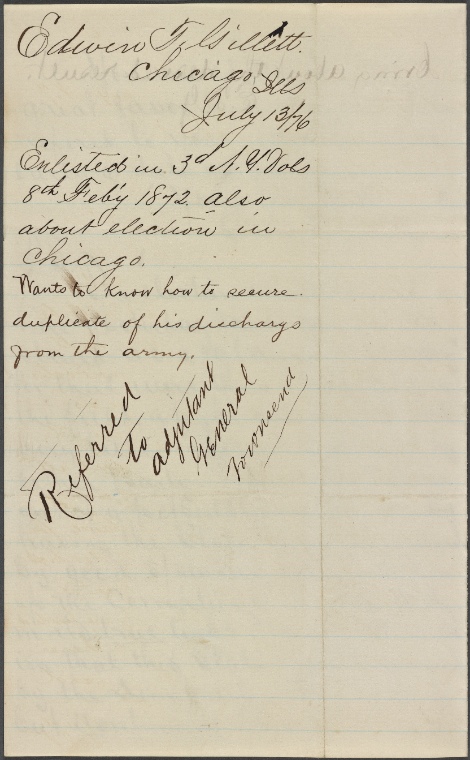 Edwin F. Gillett.
Chicago Ills
July 13/76
Enlisted in 3d N.Y. Vols
8th Feb'y 1872 also
about election in
Chicago.
Wants to know how to secure
duplicate of his discharge
from the army.
Referred
to
adjutant
General
Townsend